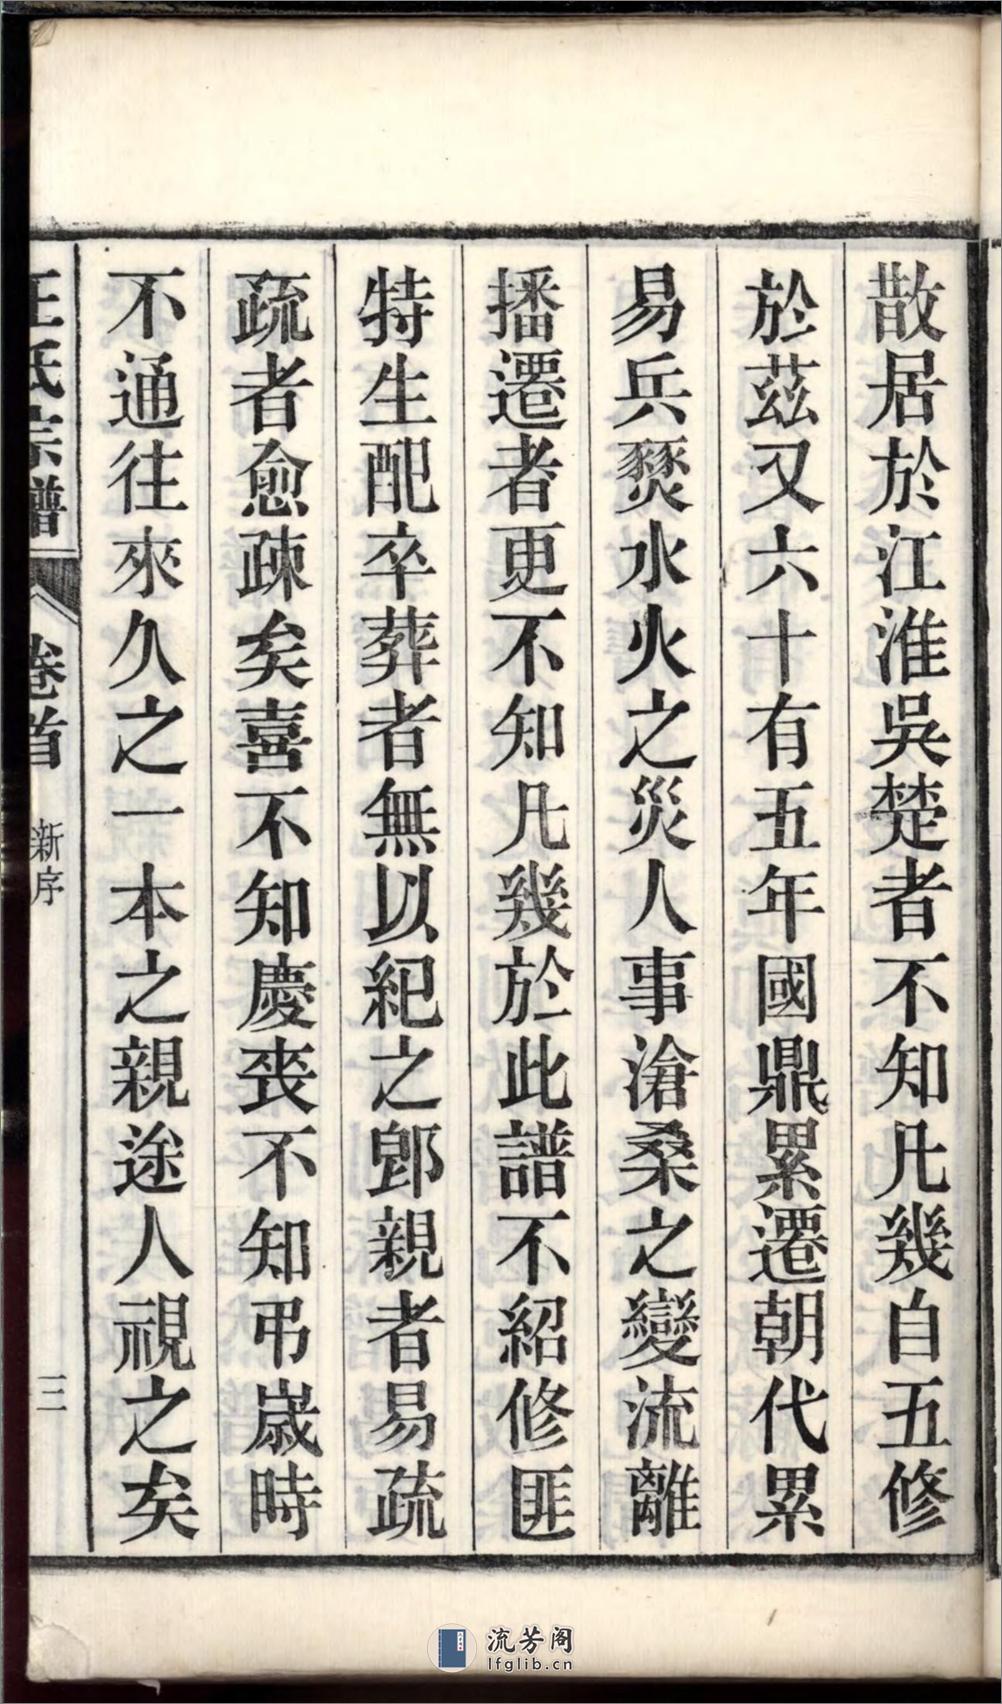 散居於江淮吳楚者不知凡幾自五修
於茲又六十有五年國鼎累遷朝代累
易兵燹水火之災人事滄桑之變流離
播遷者更不知凡幾於此譜不紹修匪
特生配卒葬者無以紀之卽親者易疏
疏者愈疎矣喜不知慶丧不知弔歲時
不通往來久之一本之親途人視之矣
氏宗譜
卷首
新序
三
流芳阁
lfglib.cn